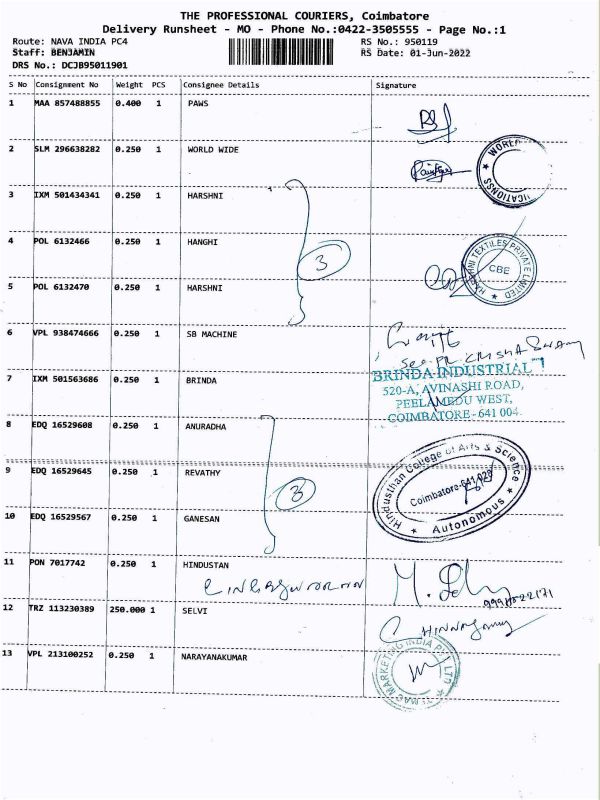 THE PROFESSIONAL COURIERS, Coimbatore
Delivery Runsheet - MO - Phone No.:0422-3505555 - Page No.:1
Route: NAVA INDIA PC4 RS No.: 950119
Staff: BENJAMIN RS Date: 01-Jun-2022
DRS No.: DCJB95011901
S No Consignment No Weight PCS Consignee Details Signature
1 MAA 857488855 0.400 1 PAWS
2 SLM 296638282 0.250 1 WORLD WIDE
WORLD
3 IXM 501434341 0.250 1 HARSHNI
4 POL 6132466 0.250 1 HANGHI
3
HARSHNI TEXTILES PRIVATE LIMITED
CBE
5 POL 6132470 0.250 1 HARSHNI
6 VPL 938474666 0.250 1 SB MACHINE
7 IXM 501563686 0.250 1 BRINDA
BRINDA INDUSTRIAL
520-A, AVINASHI ROAD,
PEELAMEDU WEST,
COIMBATORE - 641 004.
8 EDQ 16529608 0.250 1 ANURADHA
9 EDQ 16529645 0.250 1 REVATHY
3
Hindusthan College of Arts & Science
Coimbatore-641 028
Autonomous
10 EDQ 16529567 0.250 1 GANESAN
11 PON 7017742 0.250 1 HINDUSTAN
12 TRZ 113230389 250.000 1 SELVI
13 VPL 213100252 0.250 1 NARAYANAKUMAR
MARKETING INDIA PVT LTD